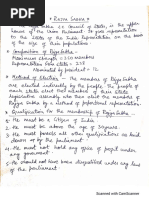 * RAJYA SABHA *
Rajya Sabha or Council of States, is the upper
house of the Union Parliament. It gives representation
to the States of the Indian Union
the size of their populations.
* Composition of Rajya Sabha -
Maximum strength - 250 members
Representation from state - 238
by president - 12
* Method of Election - The members of Rajya Sabha
are elected indirectly by the people. The people of
each state elect the members of their state
legislative assembly who then elect the members
of the Rajya Sabha by a method of proportional
representation.
* Qualification for the membership of Rajya Sabha
1. He must be a Citizen of India.
2. He must be above the age of 30 years.
4. He must not hold any office of profit under
any government.
5. He should not have been disqualified under any law
of the parliament.
Scanned with CamScanner